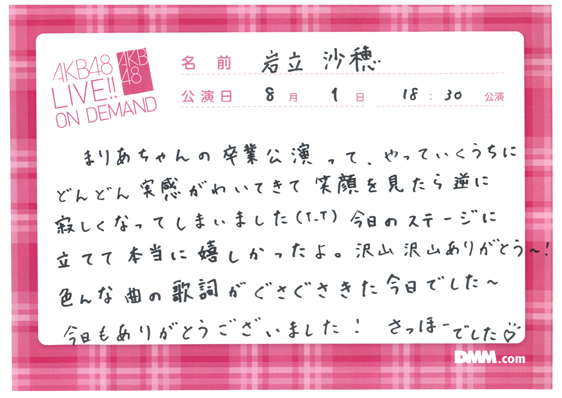 AKB48
LIVE!!
ON DEMAND
AKB
48
名前 岩立 沙穂
公演日 8月 9日 18:30 公演
まりあちゃんの卒業公演って、やっていくうちに
どんどん実感がわいてきて笑顔を見たら逆に
寂しくなってしまいました(T_T) 今日のステージに
立てて本当に嬉しかったよ。沢山沢山ありがとう〜!
色んな曲の歌詞がぐさぐさきた今日でした〜
今日もありがとうございました! さっほーでした♡
DMM.com